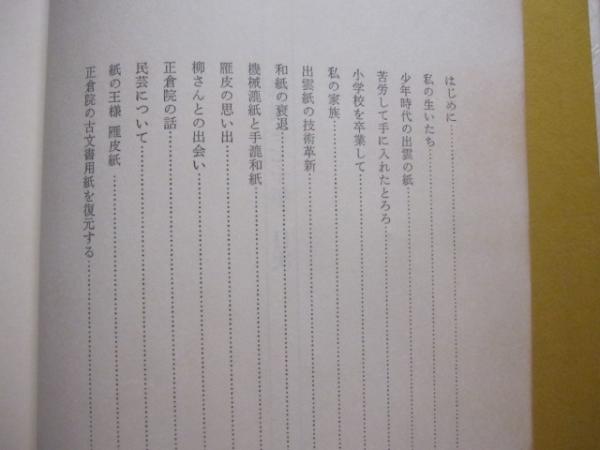 はじめに
私の生いたち
少年時代の出雲の紙
苦労して手に入れたとろろ
小学校を卒業して
私の家族
出雲紙の技術革新
和紙の衰退
機械漉紙と手漉和紙
雁皮の思い出
柳さんとの出会い
正倉院の話
民芸について
紙の王様 雁皮紙
正倉院の古文書用紙を復元する